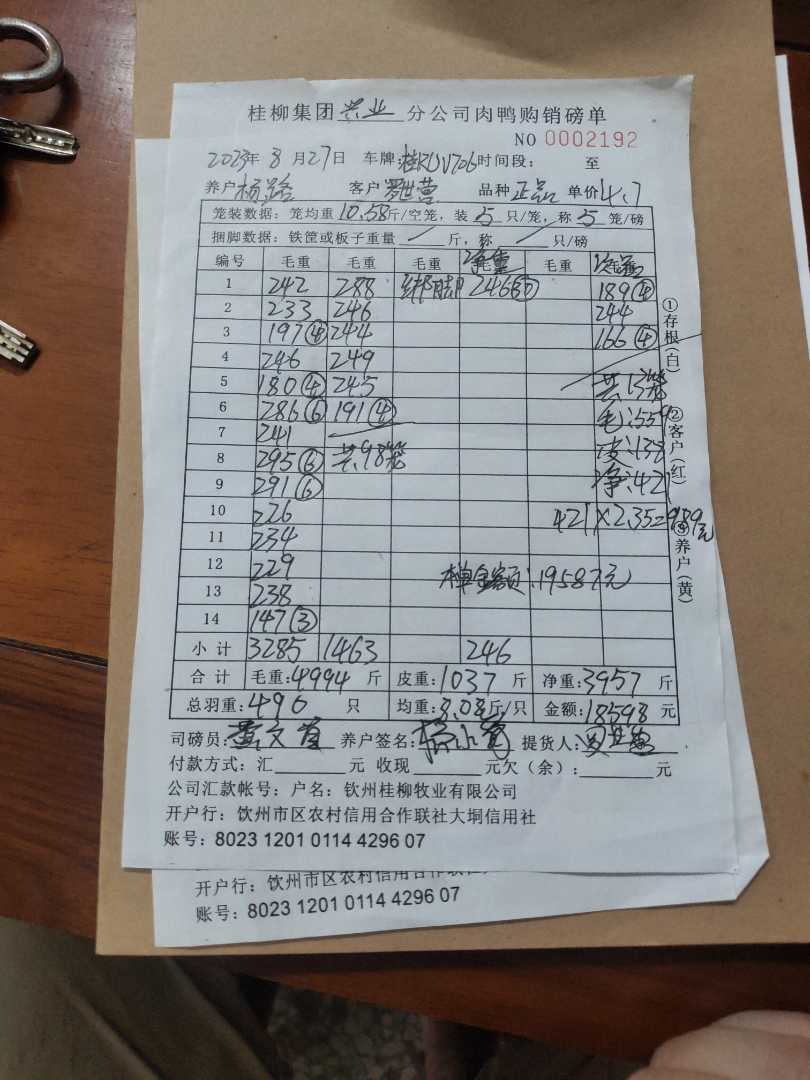 桂柳集团兴业分公司肉鸭购销磅单
NO 0002192
2023年8月27日 车牌:桂KUV706 时间段: 至
养户 杨路 客户 罗世营 品种 正品 单价 4.7
笼装数据:笼均重10.58斤/空笼,装5只/笼,称5笼/磅
捆脚数据:铁筐或板子重量 斤,称 只/磅
编号 毛重 毛重 毛重 净重 毛重 次品
1 242 288 绑脚 246 189④
2 233 246 244
3 197④ 244 166④
4 246 249
5 180④ 245 共13笼
6 286⑥ 191④ 毛:559
7 241 皮:138
8 295⑥ 共98笼 净:421
9 291⑥
10 226 421×2.35=989元
11 234
12 229 本单金额:19587元
13 238
14 147③
小计 3285 1463 246
合计 毛重:4994斤 皮重:1037斤 净重:3957斤
总羽重:496只 均重:8.08斤/只 金额:18598元
①存根(白)
②客户(红)
③养户(黄)
司磅员: 养户签名: 提货人:
付款方式:汇 元 收现 元欠(余): 元
公司汇款帐号:户名:钦州桂柳牧业有限公司
开户行:钦州市区农村信用合作联社大垌信用社
账号:8023 1201 0114 4296 07
开户行:钦州市区农村信用合作联
账号:8023 1201 0114 4296 07